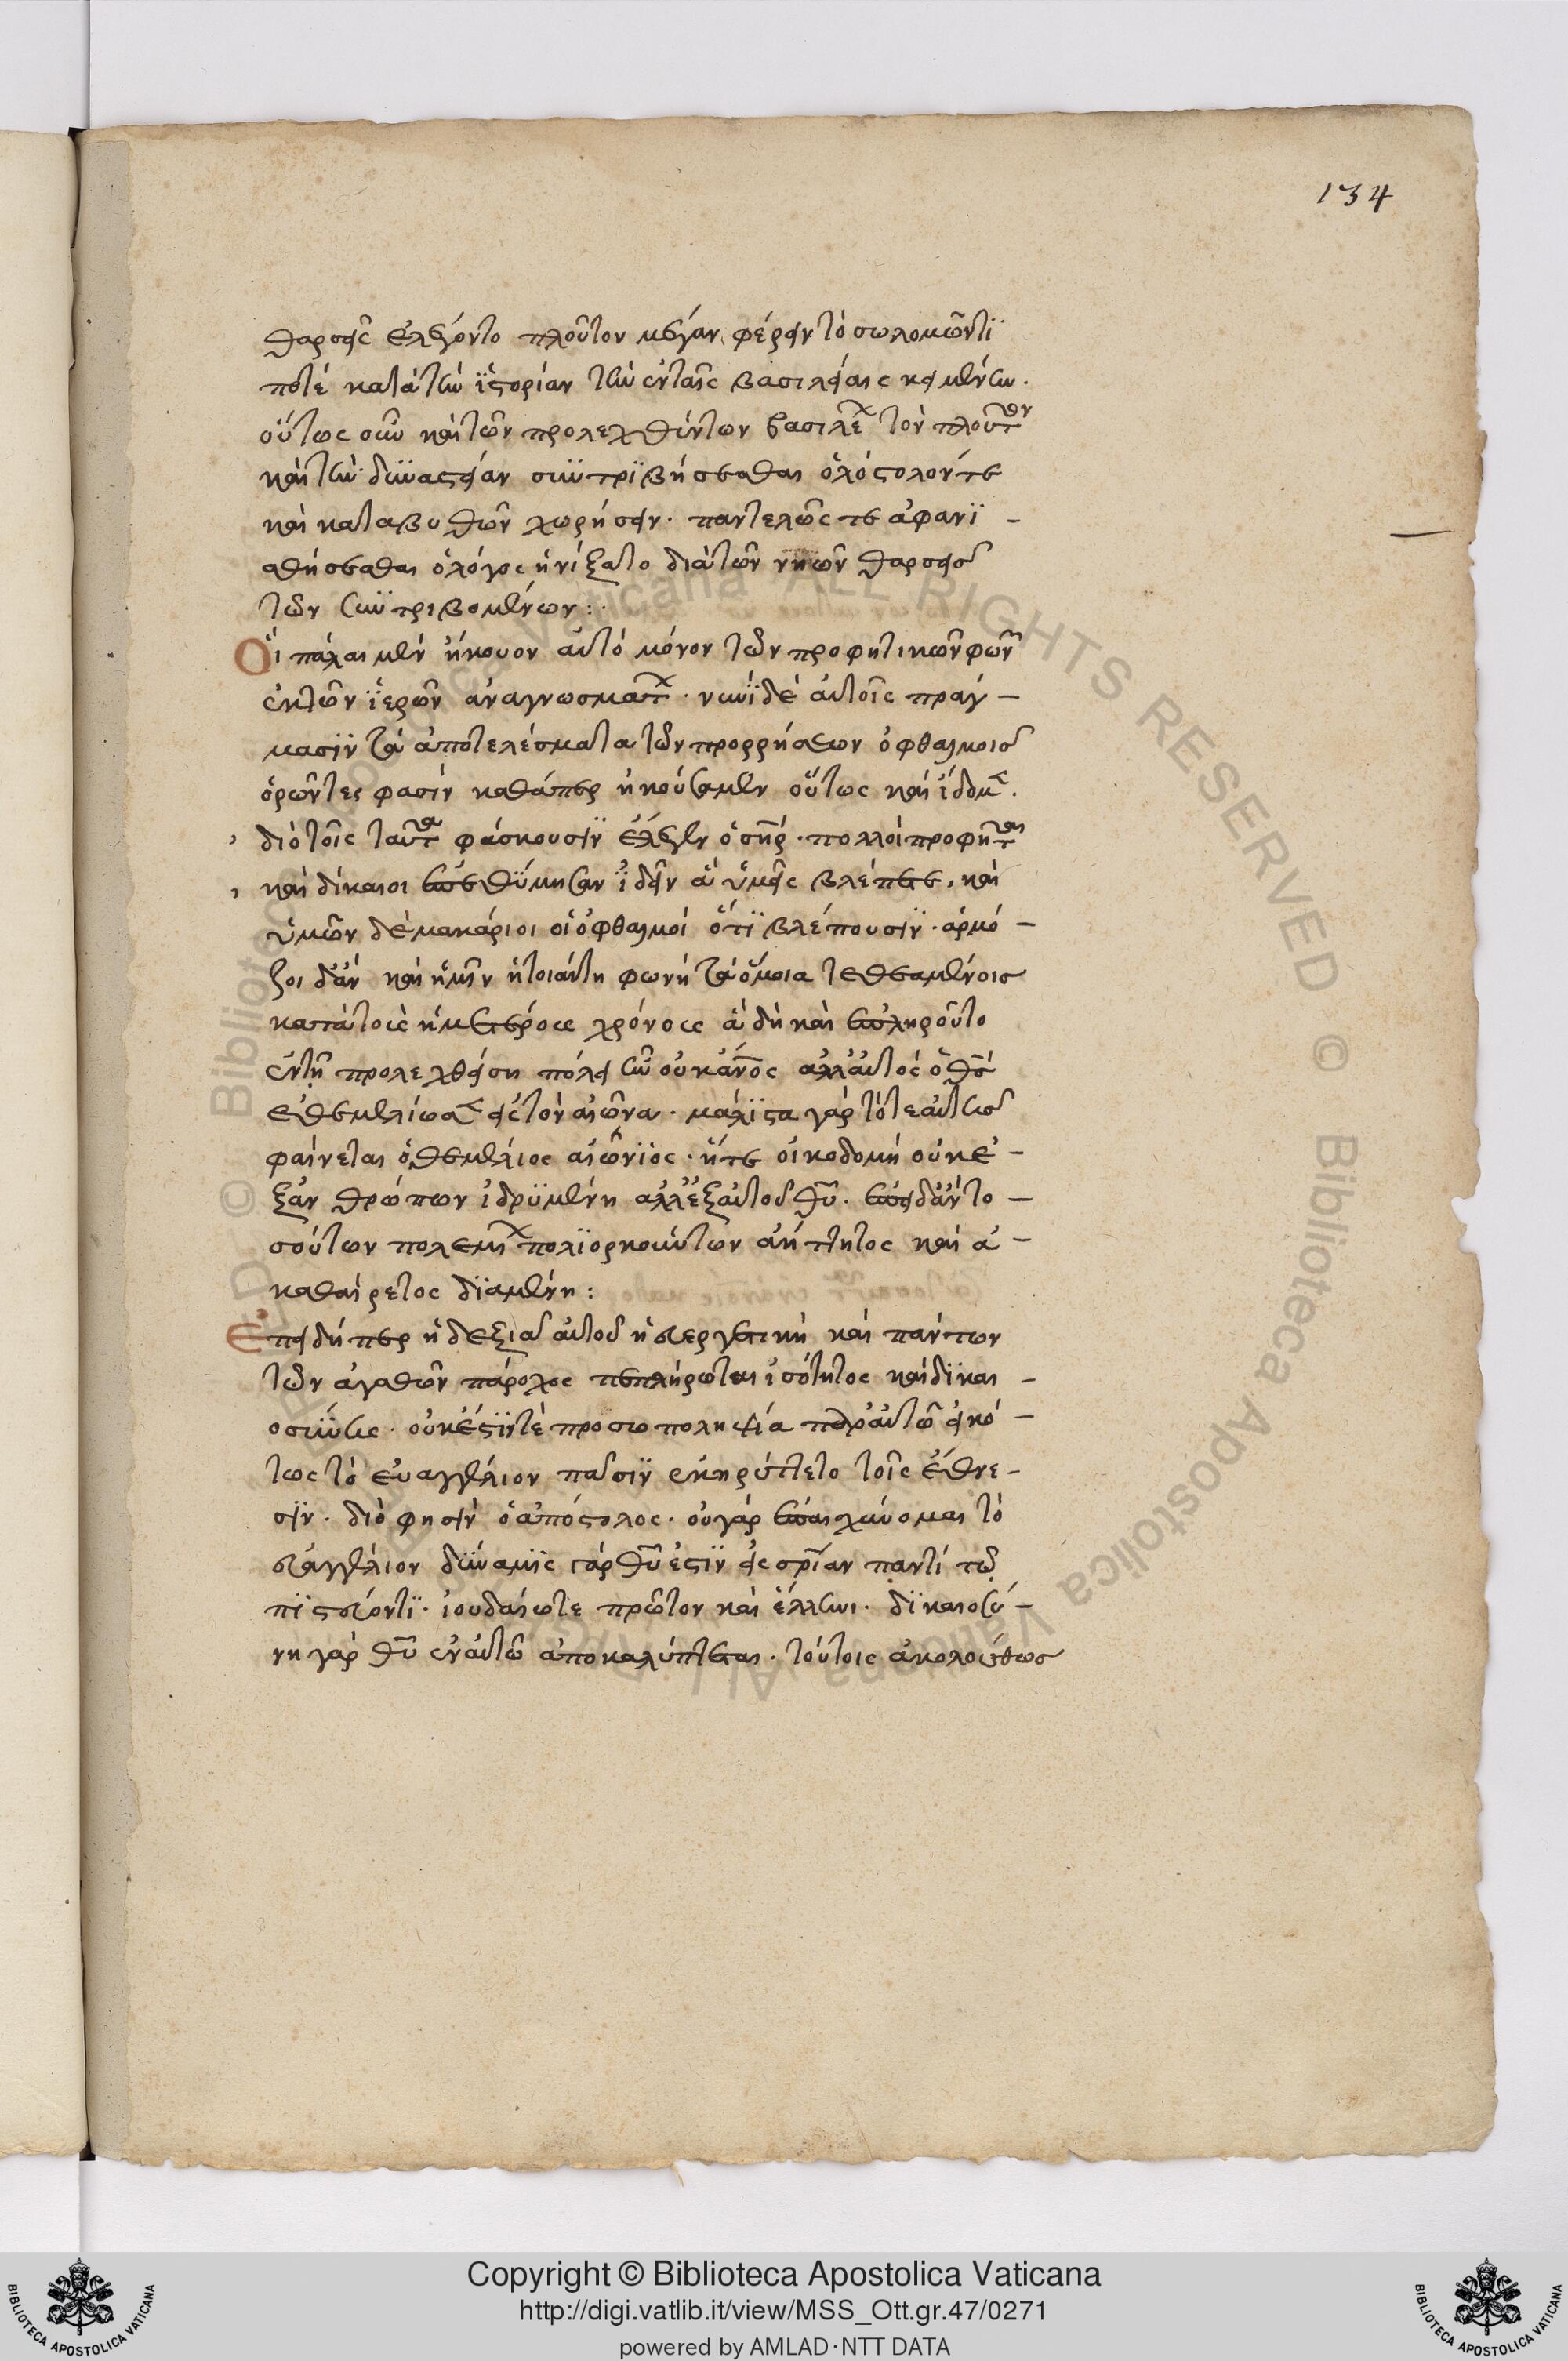 134
θαρσεῖς ἐλέγοντο πλοῦτον μέγαν φέρειν τὸ σωλομῶντϊ
ποτέ κατὰ τὴν ἱ̈στορίαν τὴν ἐν ταῖς βασιλείαις κειμένην.
οὕτως οὖν καὶ τῶν προλεχθέντων βασιλέ τὸν πλοῦτον
καὶ τὴν δϋναστείαν συντρϊβήσεσθαι ὁλόστολόν τε
καὶ κατα βυθῶν χωρήσειν. παντελῶς τε ἀφανϊ-
σθήσεσθαι ὁ λόγος ἠνίξατο διὰ τῶν νηῶν θαρσεῖς
τῶν συντριβομένων:
Οἱ πάλαι μὲν ἤκουον αὐτὸ μόνον τῶν προφητικῶν φων
ἐκ τῶν ἱ̈ερῶν ἀναγνωσμάτ. νυνῒ δὲ αὐτοῖς πράγ-
μασϊν τὰ ἀποτελέσματα τῶν προρρήσεων ὀφθαλμοῖς
ὁρῶντες φασὶν καθάπερ ἠκούσαμεν οὕτως καὶ ἴδομ.
διὸ τοῖς ταῦτα φάσκουσϊν ἔλεγεν ὁ σηρ. πολλοὶ προφῆται
καὶ δίκαιοι ἐπεθύμησαν ἰ̈δεῖν ἃ ὑμεῖς βλέπετε, καὶ
ὑμῶν δὲ μακάριοι οἱ ὀφθαλμοί ὅτϊ βλέπουσϊν. ἁρμό-
ζοι δἂν καὶ ἡμῖν ἡ τοιαύτη φωνὴ τὰ ὅμοια τεθεαμένοις
κατὰ τοὺς ἡμετέρους χρόνους ἃ δὴ καὶ ἐπληροῦτο
ἐν τῇ προλεχθείσῃ πόλει ἣν οὐκ ἄνος ἀλλ' αὐτὸς ὁ θς
ἐθεμελίωσ εἰς τὸν αἰῶνα. μάλϊστα γὰρ τότε αὐτῆς
φαίνεται ὁ θεμέλιος αἰώνϊος. ἥτε οἰκοδομή οὐκ ἐ-
ξ ἀνθρώπων ἱδρϋμένη ἀλλ' ἐξ αὐτοῦ θυ. ἐπεὶ δ' ἂν το-
σούτων πολεμι πολϊορκούντων ἀήττητος καὶ ἀ-
καθαίρετος δϊαμένῃ:
Ἐπειδήπερ ἡ δεξιὰ αὐτοῦ ἡ εὐεργετικὴ καὶ πάντων
τῶν ἀγαθῶν πάροχος πεπλήρωται ἰσότητος καὶ δϊκαι-
οσύνης. οὐκ ἔστϊν τὲ προσωποληψία παρ' αὐτῷ εἰκό-
τως τὸ εὐαγγέλιον πᾶσϊν ἐκηρύττετο τοῖς ἔθνε-
σϊν. διὸ φησϊν ὁ ἀπόστολος. οὐ γὰρ ἐπαισχύνομαι τὸ
εὐαγγέλιον δύναμϊς γὰρ θυ ἐστϊν εἰς σριαν παντὶ τῷ
πϊστεύοντϊ. ἰουδαίω τε πρῶτον καὶ ἕλληνι. δϊκαιοσύ-
νη γὰρ θυ ἐν αὐτῷ ἀποκαλύπτεται. τούτοις ἀκολούθως
Copyright © Biblioteca Apostolica Vaticana
http://digi.vatlib.it/view/MSS_Ott.gr.47/0271
powered by AMLAD·NTT DATA